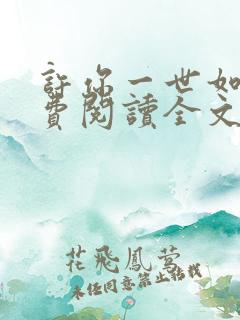 許你一世如
費閱讀全文
花飛鳳營
未經同意禁止轉載